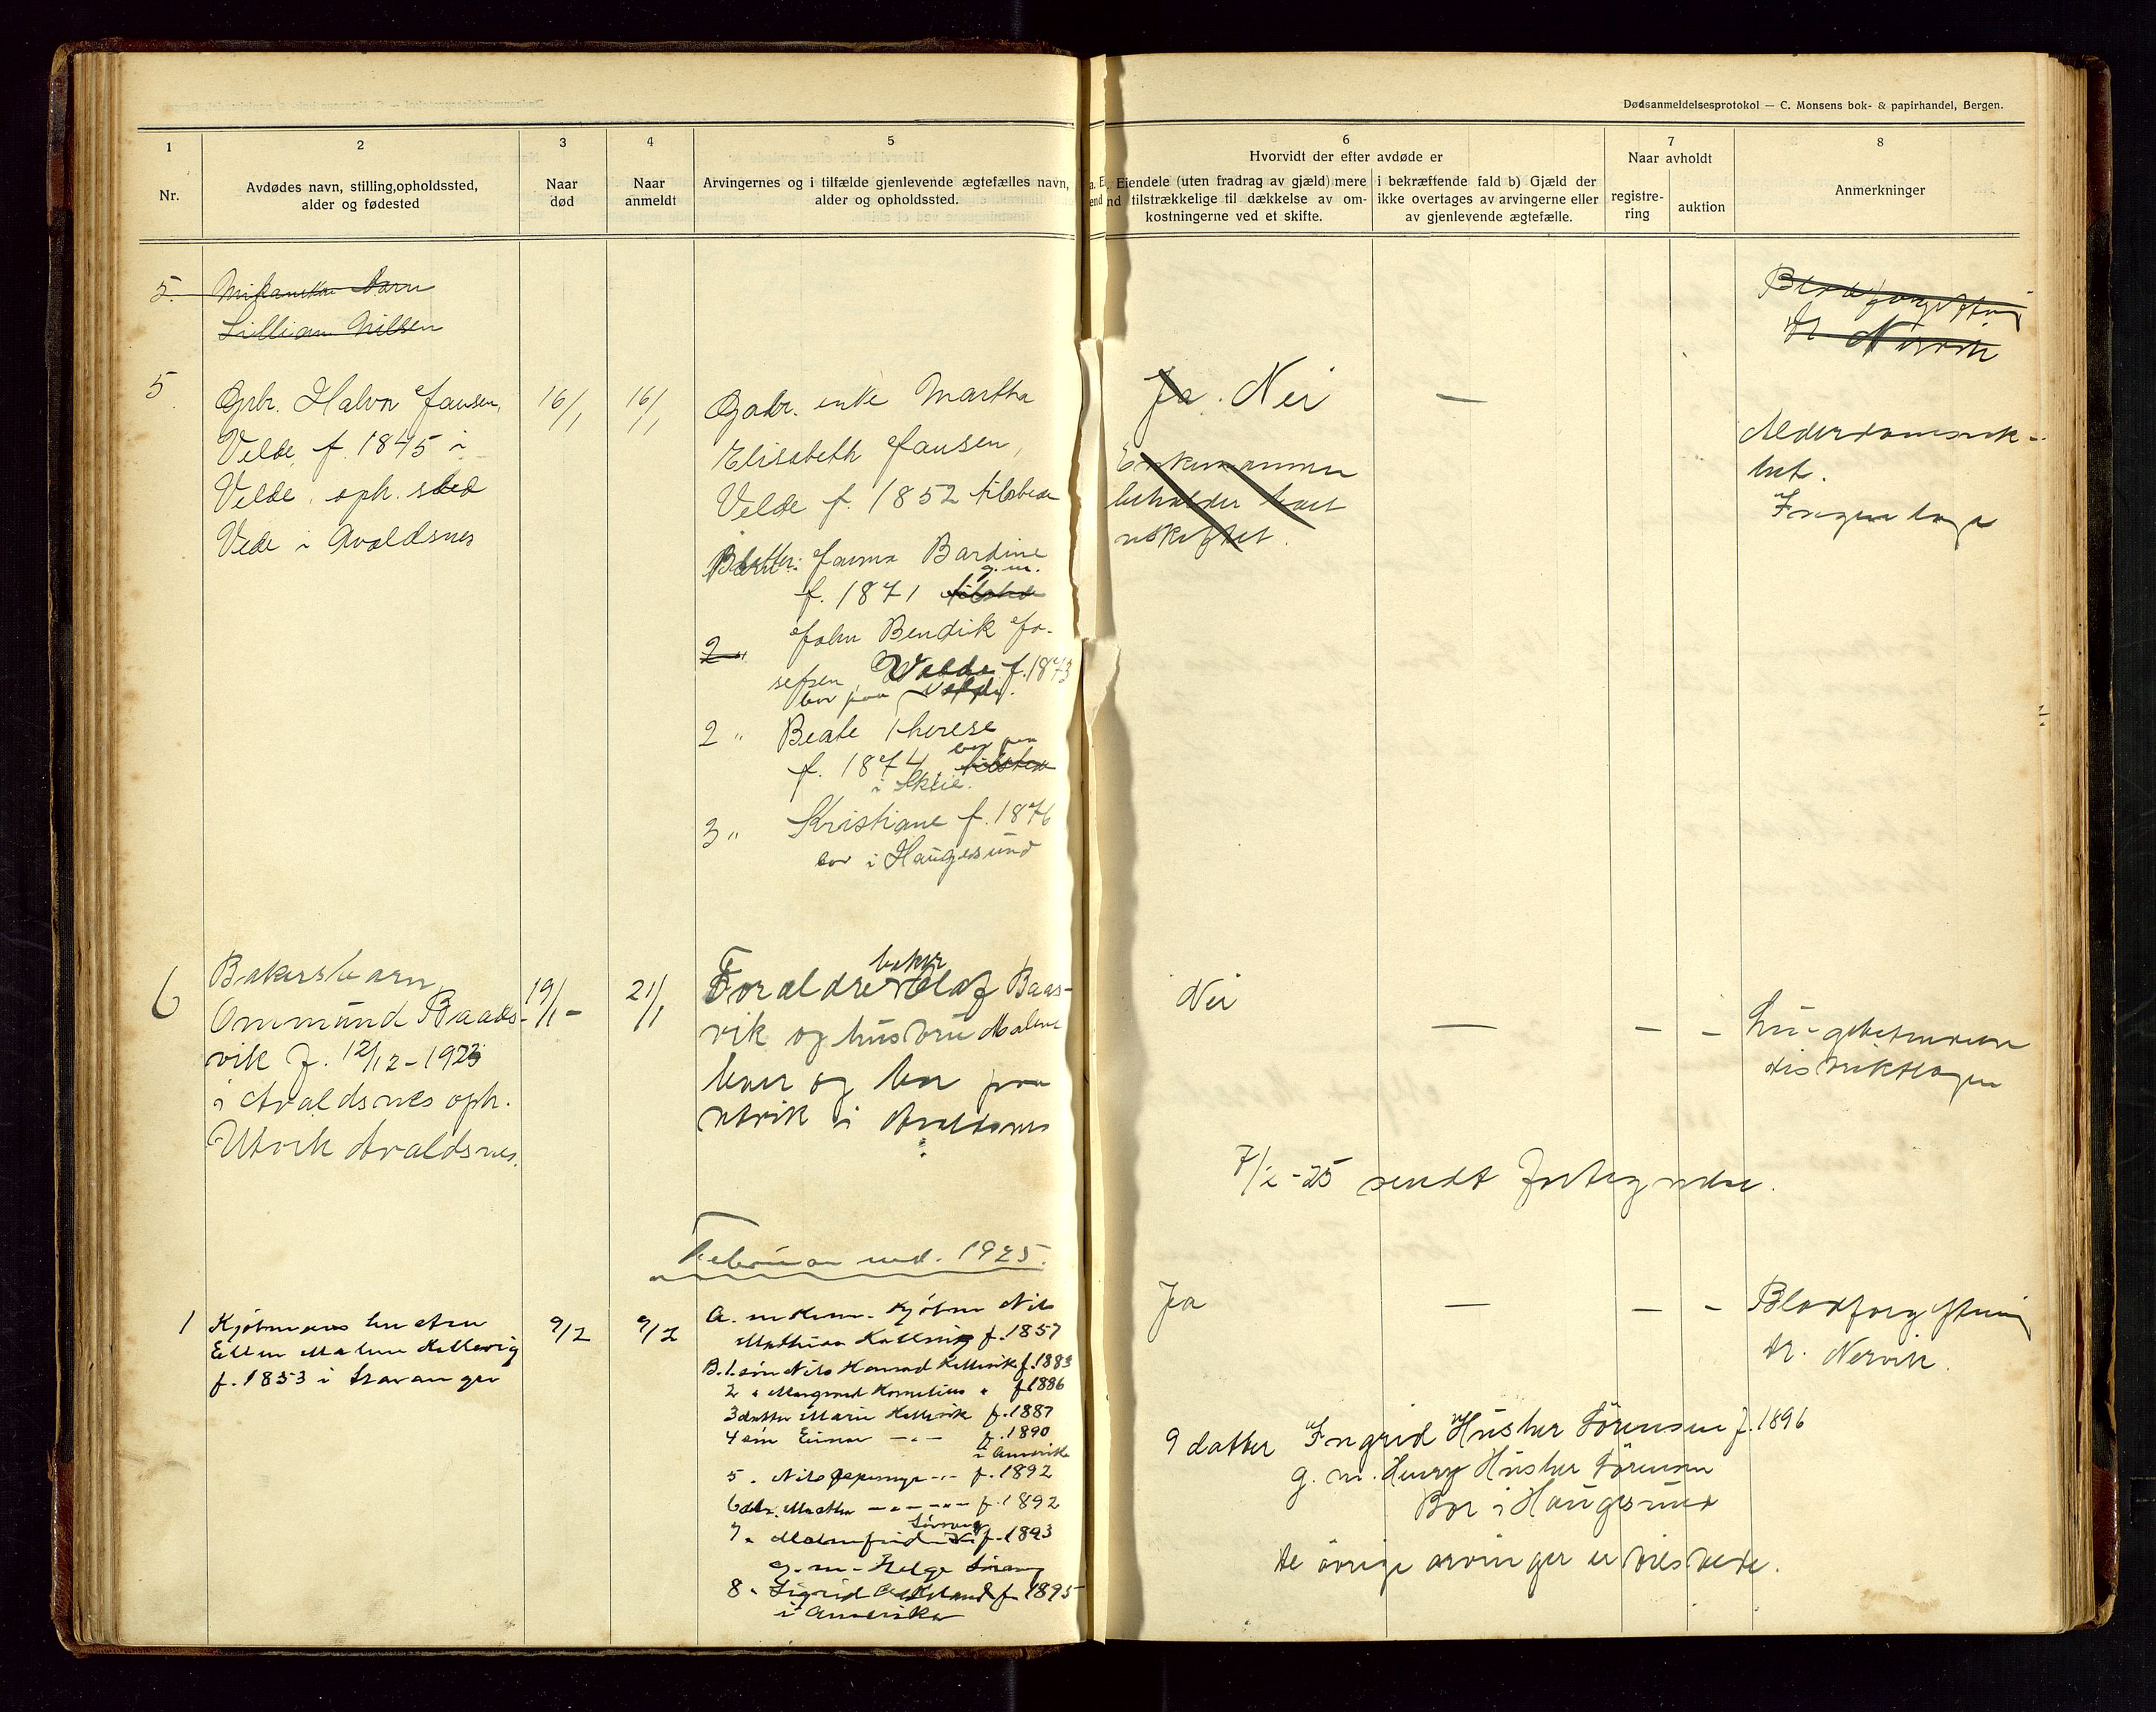 Dødsanmeldelsesprotokol — C. Monsens bok- & papirhandel, Bergen.
1
Nr.
2
Avdødes navn, stilling,opholdssted,
alder og fødested
3
Naar
død
4
Naar
anmeldt
5
Arvingernes og i tilfælde gjenlevende ægtefælles navn,
alder og opholdssted.
6
Hvorvidt der efter avdøde er
Eiendele (uten fradrag av gjæld) mere
end tilstrækkelige til dækkelse av om-
kostningerne ved et skifte.
i bekræftende fald b) Gjæld der
ikke overtages av arvingerne eller
av gjenlevende ægtefælle.
7
Naar avholdt
registre-
ring
auktion
8
Anmerkninger
5.
Barn
Lillian Nilsen
Blodforgiftning
dr Nervik
5
Gbr. Halvor Jansen,
Velde, f. 1845 i
Velde, oph. sted
Vede i Avaldsnes
16/1
16/1
Gabr. enke Martha
Elisabeth Jansen,
Velde f. 1852 tilstede
Datter: Janna Bardine
g. m.
f. 1871 tilstede
2 " John Bendik Jo-
sefsen, Velde f. 1873
bor paa Velde.
2 " Beate Therese
bor paa
f. 1874, tilstede
i Skeie.
3 " Kristiane f. 1876
bor i Haugesund
Ja. Nei
—
Enkemannen
beholder boet
uskiftet.
Alderdomsvak-
het.
Ingen læge
6
Bakersbarn
Ommund Baads-
vik f. 12/12-1923
i Avaldsnes oph.
Utvik Avaldsnes.
19/1 -
21/1
baker
Foraldre Olaf Baas-
vik og hustru Malene
lever og bor paa
utvik i Avaldsnes
Nei
— — —
Lungebetændelse
distriktslægen
7/2-25 sendt fortegnelse.
Februar md. 1925.
1
Kjøbmanns hustru
Ellen Malene Kallevig
f. 1853 i Stavanger
9/2
9/2
A. Kjøbm Nils
Mathias Kallevig f. 1857
B. 1. søn Nils Konrad Kallevik f. 1883
2 " Kornelius " f 1886
3 datter Marie Kallevik f. 1887
4 søn Einar — " — f. 1890
i Amerika
5 " Nils — " — f. 1892
6 dtr. Martha — " — " — f. 1892
7 " f. 1893
g. m. Helge
8 " Sigrid f 1895
i Amerika
Ja
— — —
Blodforgiftning
dr. Nervik.
9 datter Ingrid Husher Sørensen f. 1896
g. m. Henry Husher Sørensen
Bor i Haugesund
De øvrige arvinger er tilstede.